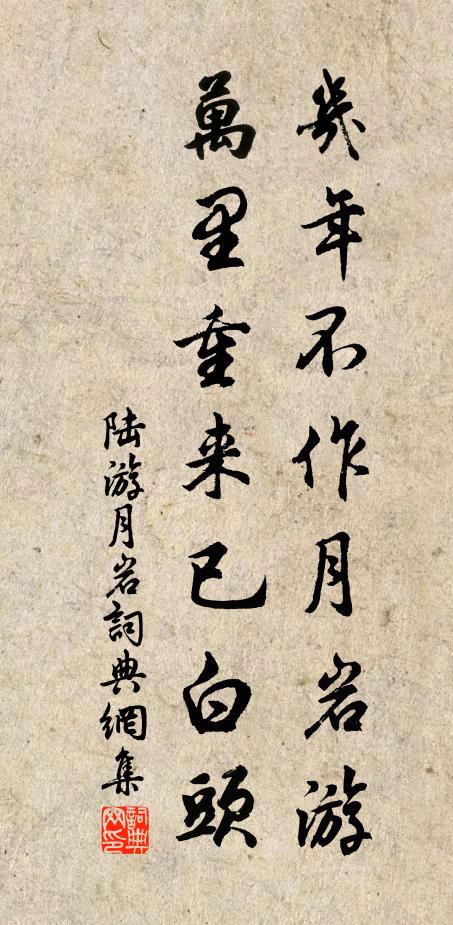 幾年不作月岩游
萬里重来已白頭
陆游月岩詞典網集
詞典網印